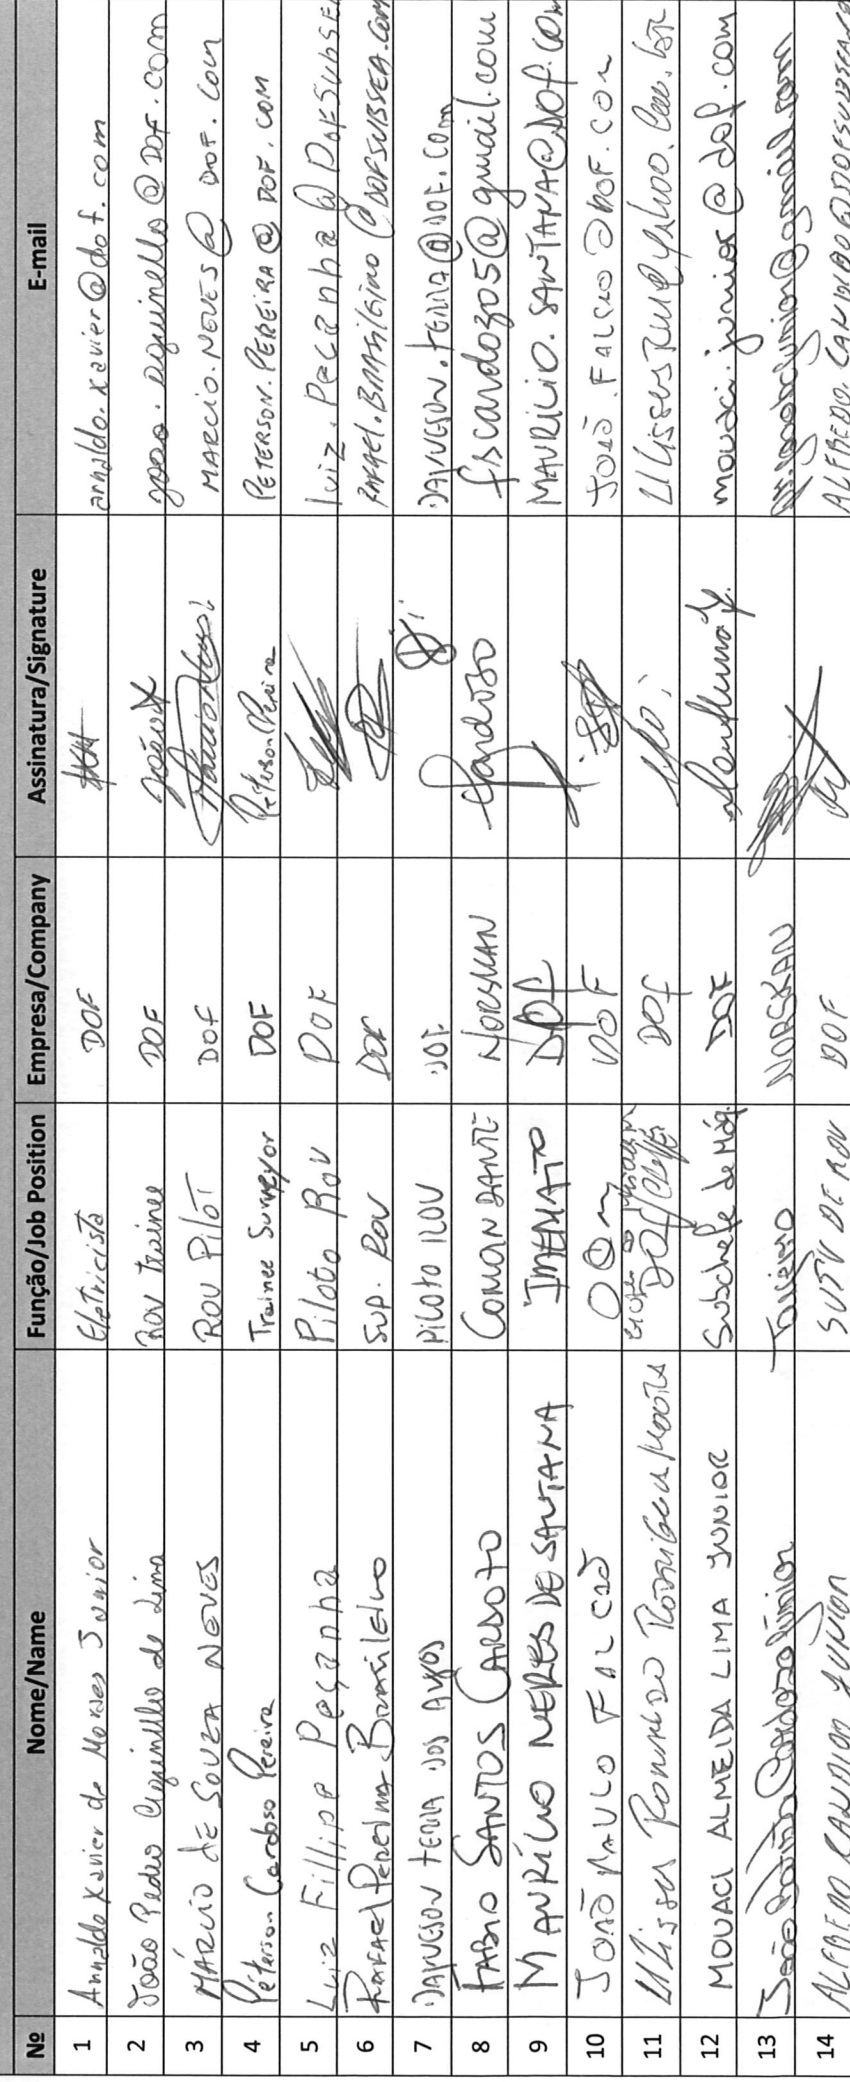 Nº Nome/Name Função/Job Position Empresa/Company Assinatura/Signature E-mail
1 Arnaldo Xavier de Moraes Junior Eletricista DOF arnaldo.xavier@dof.com
2 João Pedro Aquinello de Lima ROV trainee DOF João joao.aquinello@DOF.com
3 MÁRCIO DE SOUZA NEVES ROV PILOT DOF MARCIO.NEVES@DOF.COM
4 Péterson Cardoso Pereira Trainee Surveyor DOF Peterson Pereira PETERSON.PEREIRA@DOF.COM
5 Luiz Fillipe Peçanha Piloto ROV DOF luiz.Pecanha@DOFSubsea
6 RAFAEL Pereira Brasileiro SUP. ROV DOF RAFAEL.BRASILEIRO@DOFSUBSEA.COM
7 DAYVESON TERRA DOS ANJOS PILOTO ROV DOF DAYVESON.TERRA@DOF.COM
8 FABIO SANTOS CARDOZO COMANDANTE NORSKAN Cardoso fscardozo5@gmail.com
9 MAURÍLIO NERES DE SANTANA IMEDIATO DOF MAURILIO.SANTANA@DOF.COM
10 JOAÕ PAULO FALCAÕ OOM DOF JOAÕ.FALCAO@DOF.COM
11 Ulisses DOF
12 MOUACI ALMEIDA LIMA JUNIOR Subchefe de Máq. DOF mouaci.junior@dof.com
13 João Batista Cardozo Júnior NORSKAN
14 ALFREDO CANDIDO JUNIOR SUTV DE ROV DOF